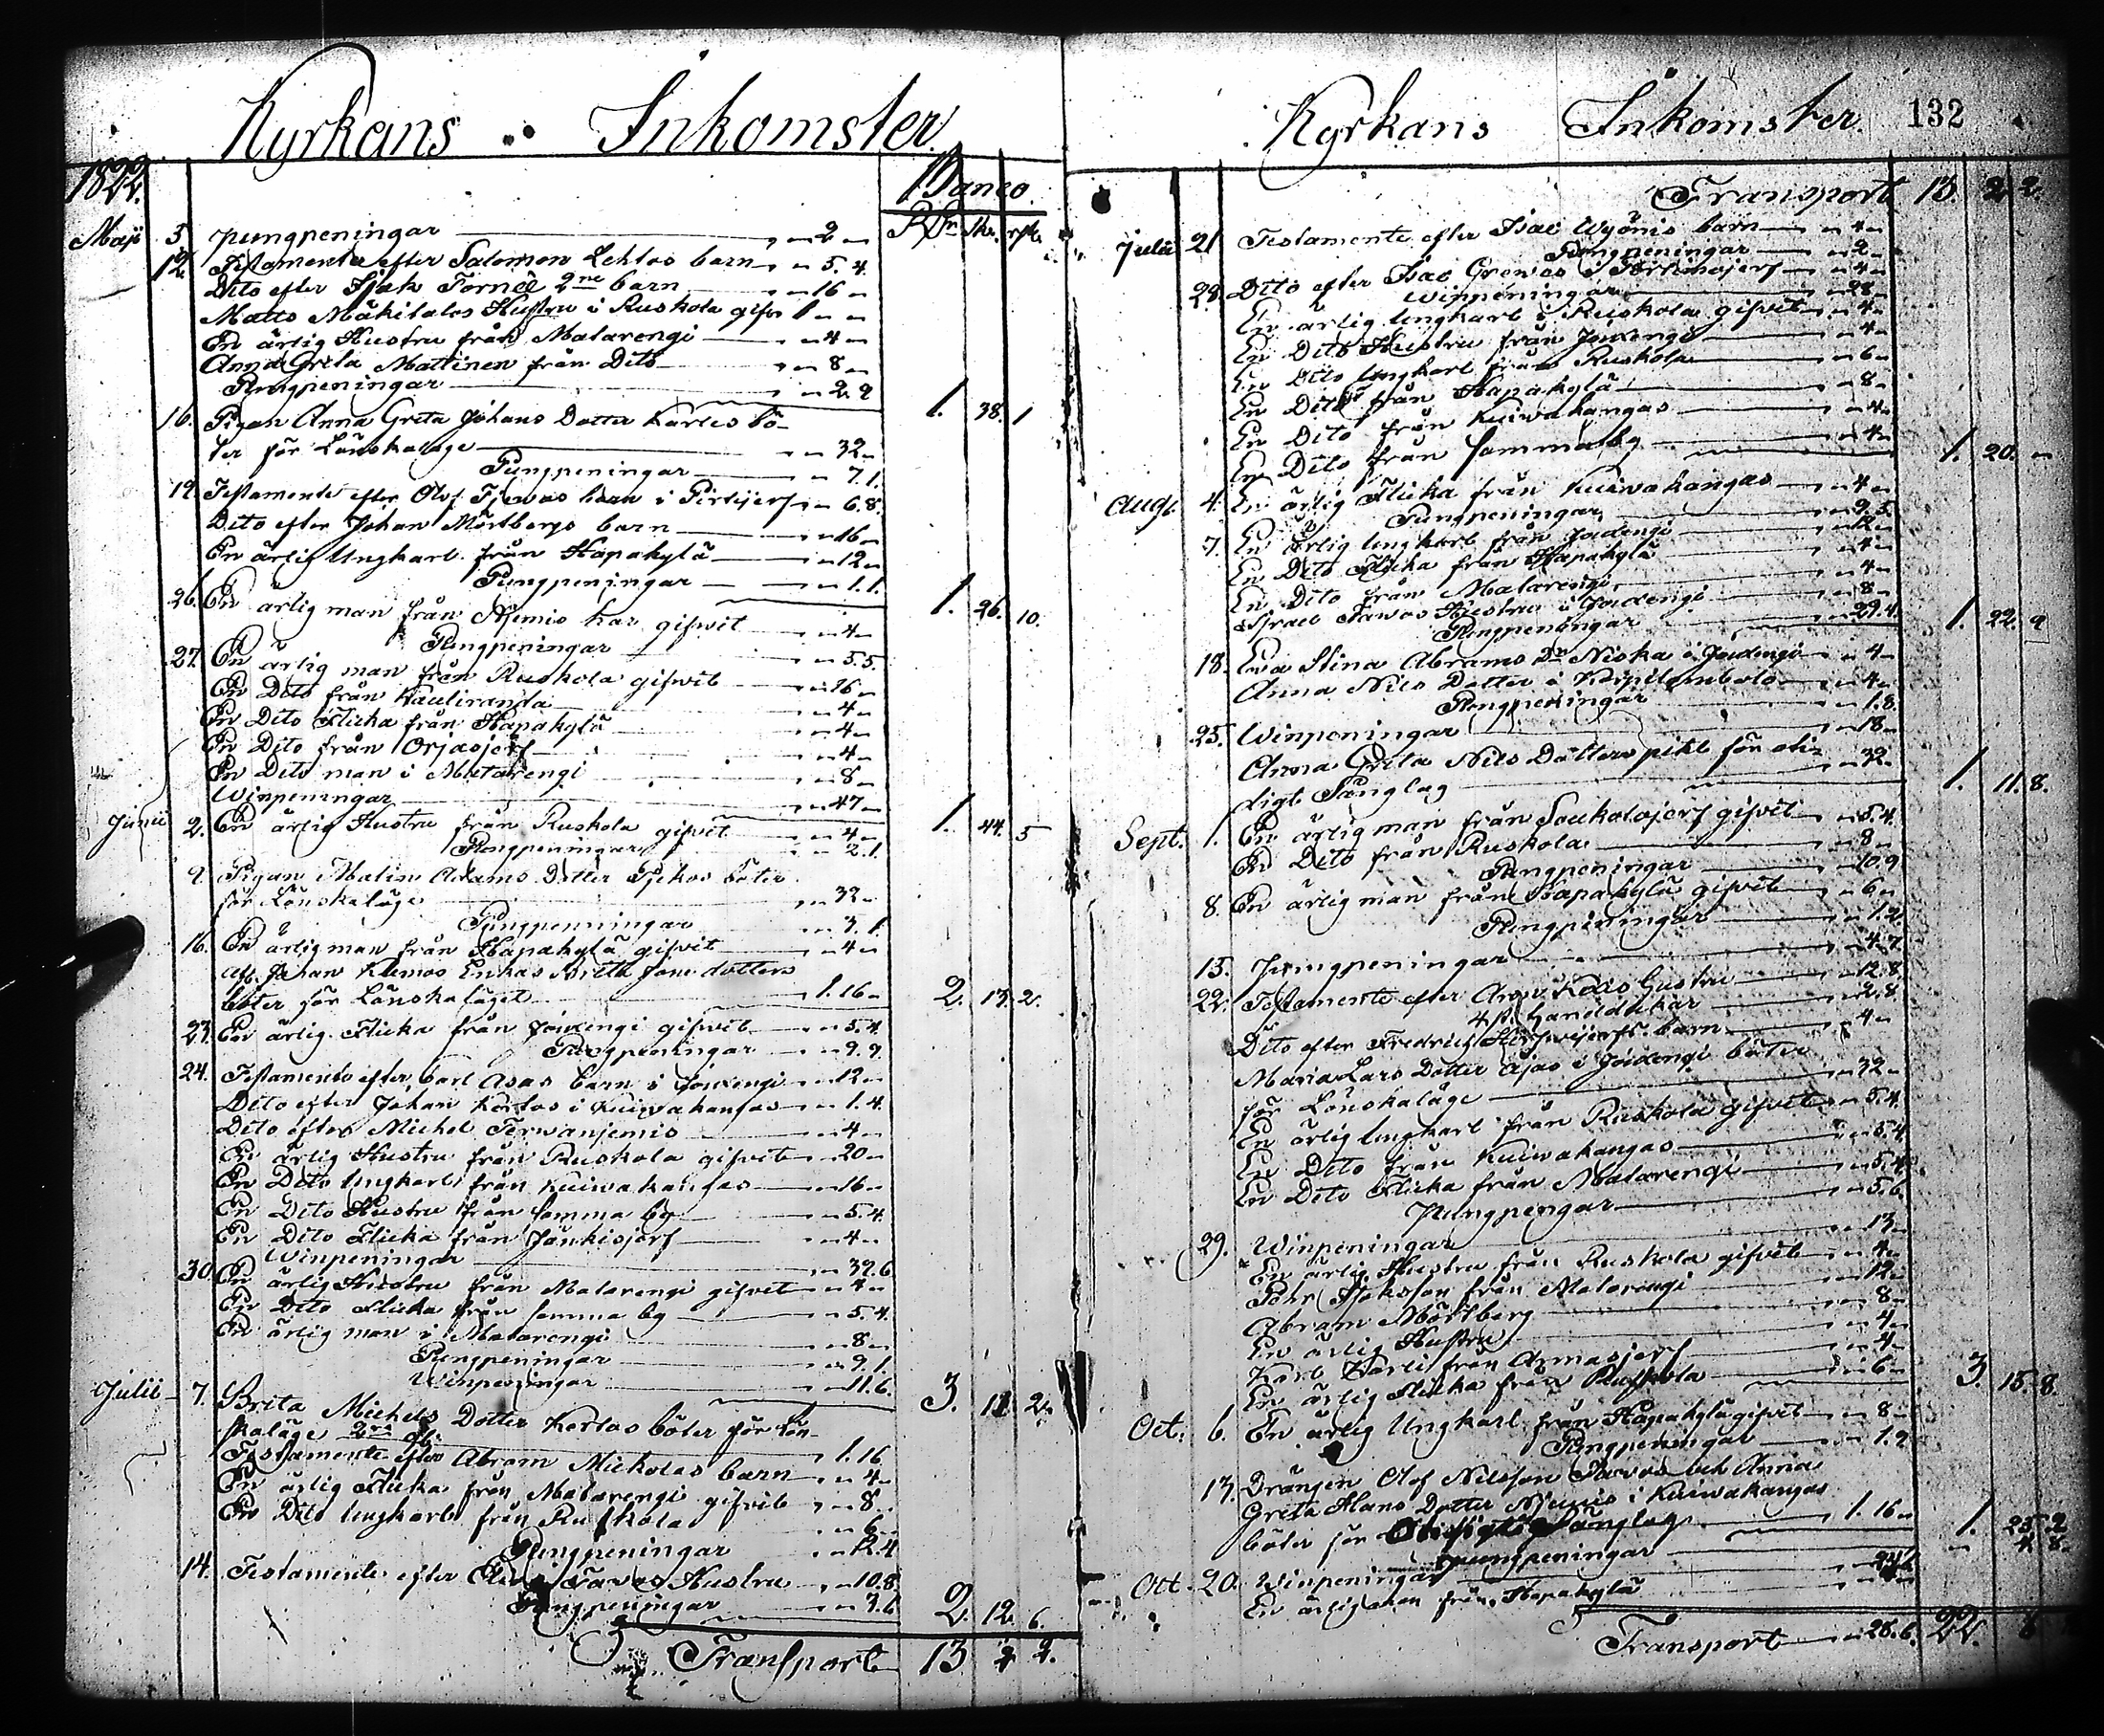 Kyrkans Inkomster
1822.
Banco.
R:Dr Sk. rst.
Maji 5 Pungpeningar — 2 —
12 Testamente efter Salomon Lehtos barn — 5. 4.
Dito efter Isak Torneé 2ne barn — 16 —
Matts Mäkitalos Hustru i Ruskola gifv. 1 — —
En ärlig Hustru från Matarengi — 4 —
Anna Greta Mattinen från Dito — 8 —
Pungpeningar — 2. 9 1. 38. 1
16. Pigan Anna Greta Johans Dotter Karles bö-
ter för Lönskaläge — 32 —
Pungpeningar — 7. 1.
19. Testamente efter Olof barn i — 6. 8.
Dito efter Johan Mörtbergs barn — 16 —
En ärlig Ungkarl från Hapakylä — 12 —
Pungpeningar — 1. 1. 1. 26. 10.
26. En ärlig man från Niemis har gifwit — 4 —
Pungpeningar — 5. 5.
27. En ärlig man från Ruskola gifwit — 16 —
En Dito från Kauliranda — 4 —
En Dito Flicka från Hapakylä — 4 —
En Dito från Orjasjerf — 4 —
En Dito man i Matarengi — 8 —
Winpeningar — 47 — 1. 44. 5
Junii 2. En ärlig Hustru från Ruskola gifvit — 4 —
Pungpeningar — 2. 1.
9. Pigan Malin Adams Dotter böter
för Lönskaläge — 32 —
Pungpenningar — 3. 1.
16. En ärlig man från Hapakylä gifvit — 4 —
Af Johan Enkas Brita Jons dotters
böter för Lönskaläget — 1. 16 — 2. 13. 2.
23. En ärlig Flicka från Jouxengi gifvit — 5. 4.
Pungpeningar — 9. 9.
24. Testamente efter Carl Asas barn i Jouxengi — 12 —
Dito efter Johan Kortos i Kuiwakangas — 1. 4.
Dito efter Michel Terwaniemis — 4 —
En ärlig Hustru från Ruskola gifvit — 20 —
En Dito Ungkarl från Kuiwakangas — 16 —
En Dito Hustru från samma by — 5. 4.
En Dito Flicka från Jänkisjerf — 4 —
Winpeningar — 39. 6
30. En ärlig Hustru från Matarengi gifvit — 4 —
En Dito Flicka från samma by — 5. 4.
En ärlig man i Matarengi — 8 —
Pungpeningar — 9. 1.
Winpeningar — 11. 6. 3. 11. 2.
Julii 7. Brita Michels Dotter Kortos böter för Lön-
skaläge 2dra — 1. 16
Testamente efter Abram Mickolas barn — 4 —
En ärlig Flicka från Matarengi gifvit — 8 —
En Dito Ungkarl från Ruskola — 6 —
Pungpeningar — 12. 4
14. Testamente efter Hustru — 10. 8.
Pungpeningar — 3. 6 2. 12. 6.
Transport 13 2 2.
Kyrkans Inkomster. 132
Transport 13. 2 2.
Julii 21 Testamente efter Isac Wyönis barn — 4 —
Pungpeningar — 2 —
28. Dito efter Isac Grewes i — 4 —
Winpeningar — 28 —
En ärlig Ungkarl i Ruskola gifvit — 4 —
En Dito Hustru från Jouxengi — 4 —
En Dito Ungkarl från Ruskola — 6 —
En Dito från Hapakylä — 8 —
En Dito från Kuiwakangas — 4 —
En Dito från samma by — 4 — 1. 20. —
Aug. 4. En ärlig Flicka från Kuiwakangas — 4 —
Pungpeningar — 9. 5.
7. En ärlig Ungkarl från Jouxengi — 12 —
En Dito Flicka från Hapakylä — 4 —
En Dito från Matarengi — 4 —
Israel Tawos Hustru i Jouxengi — 8 —
Pungpeningar — 29. 4 1. 22. 9
18. Eva Stina Abrams Dr Niska i Jouxengi — 4 —
Anna Nils Dotter i — 4 —
Pungpeningar — 1. 8.
25. Winpeningar — 18 —
Anna Greta Nils Dotters plikt för oti-
digt Sänglag — 32 — 1. 11. 8.
Sept. 1. En ärlig man från Soukolojerf gifvit — 5. 4.
En Dito från Ruskola — 8 —
Pungpeningar — 10. 9
8. En ärlig man från Hapakylä gifvit — 6 —
Pungpeningar — 1. 2
15. Pungpeningar — 4. 7.
22. Testamente efter Hustru — 12. 8.
4 st. Handdukar — 2. 8
Dito efter Fredric barn — 4 —
Maria Lars Dotter Äjas i Jouxengi böter
för Lönskaläge — 32 —
En ärlig Ungkarl från Ruskola gifvit — 5. 4.
En Dito från Kuiwakangas — 5. 4
En Dito Flicka från Matarengi — 5. 4.
Pungpengar — 5. 6.
29. Winpeningar — 13 —
En ärlig Hustru från Ruskola gifvit — 4 —
Pehr Isaksson från Matarengi — 12 —
Abram Mörtberg — 8 —
En ärlig Hustru — 4 —
Karl Karli från Armasjerf — 4 —
En ärlig Flicka från Ruskola — 6 — 3. 15. 8.
Oct. 6. En ärlig Ungkarl från Hapakylä gifvit — 8 —
Pungpeningar — 1. 2
13. Drängen Olof Nilsson och Anna
Greta Hans Dotter i Kuiwakangas
böter för Otidigt Sänglag — 1. 16 — 1. 25. 2
pungpeningar — 4. 8
Oct. 20. Winpeningar
En ärlig man från Hapakylä
Transport — 28. 6. 22. 8